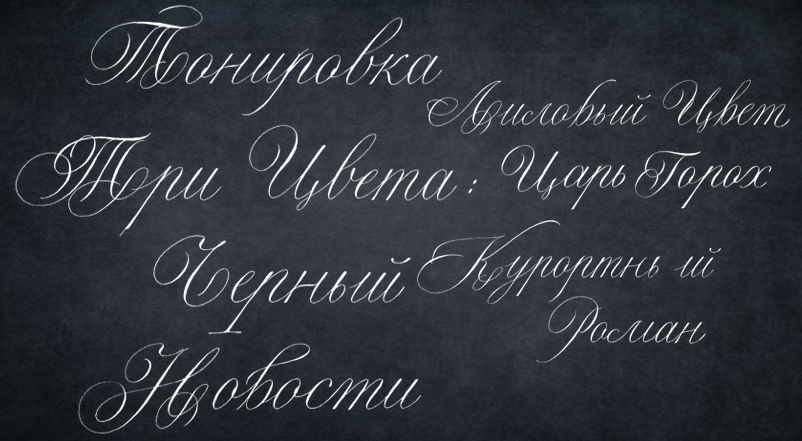 Тонировка
Лиловый Цвет
Три Цвета :
Царь Горох
Черный
Курортный
Роман
Новости